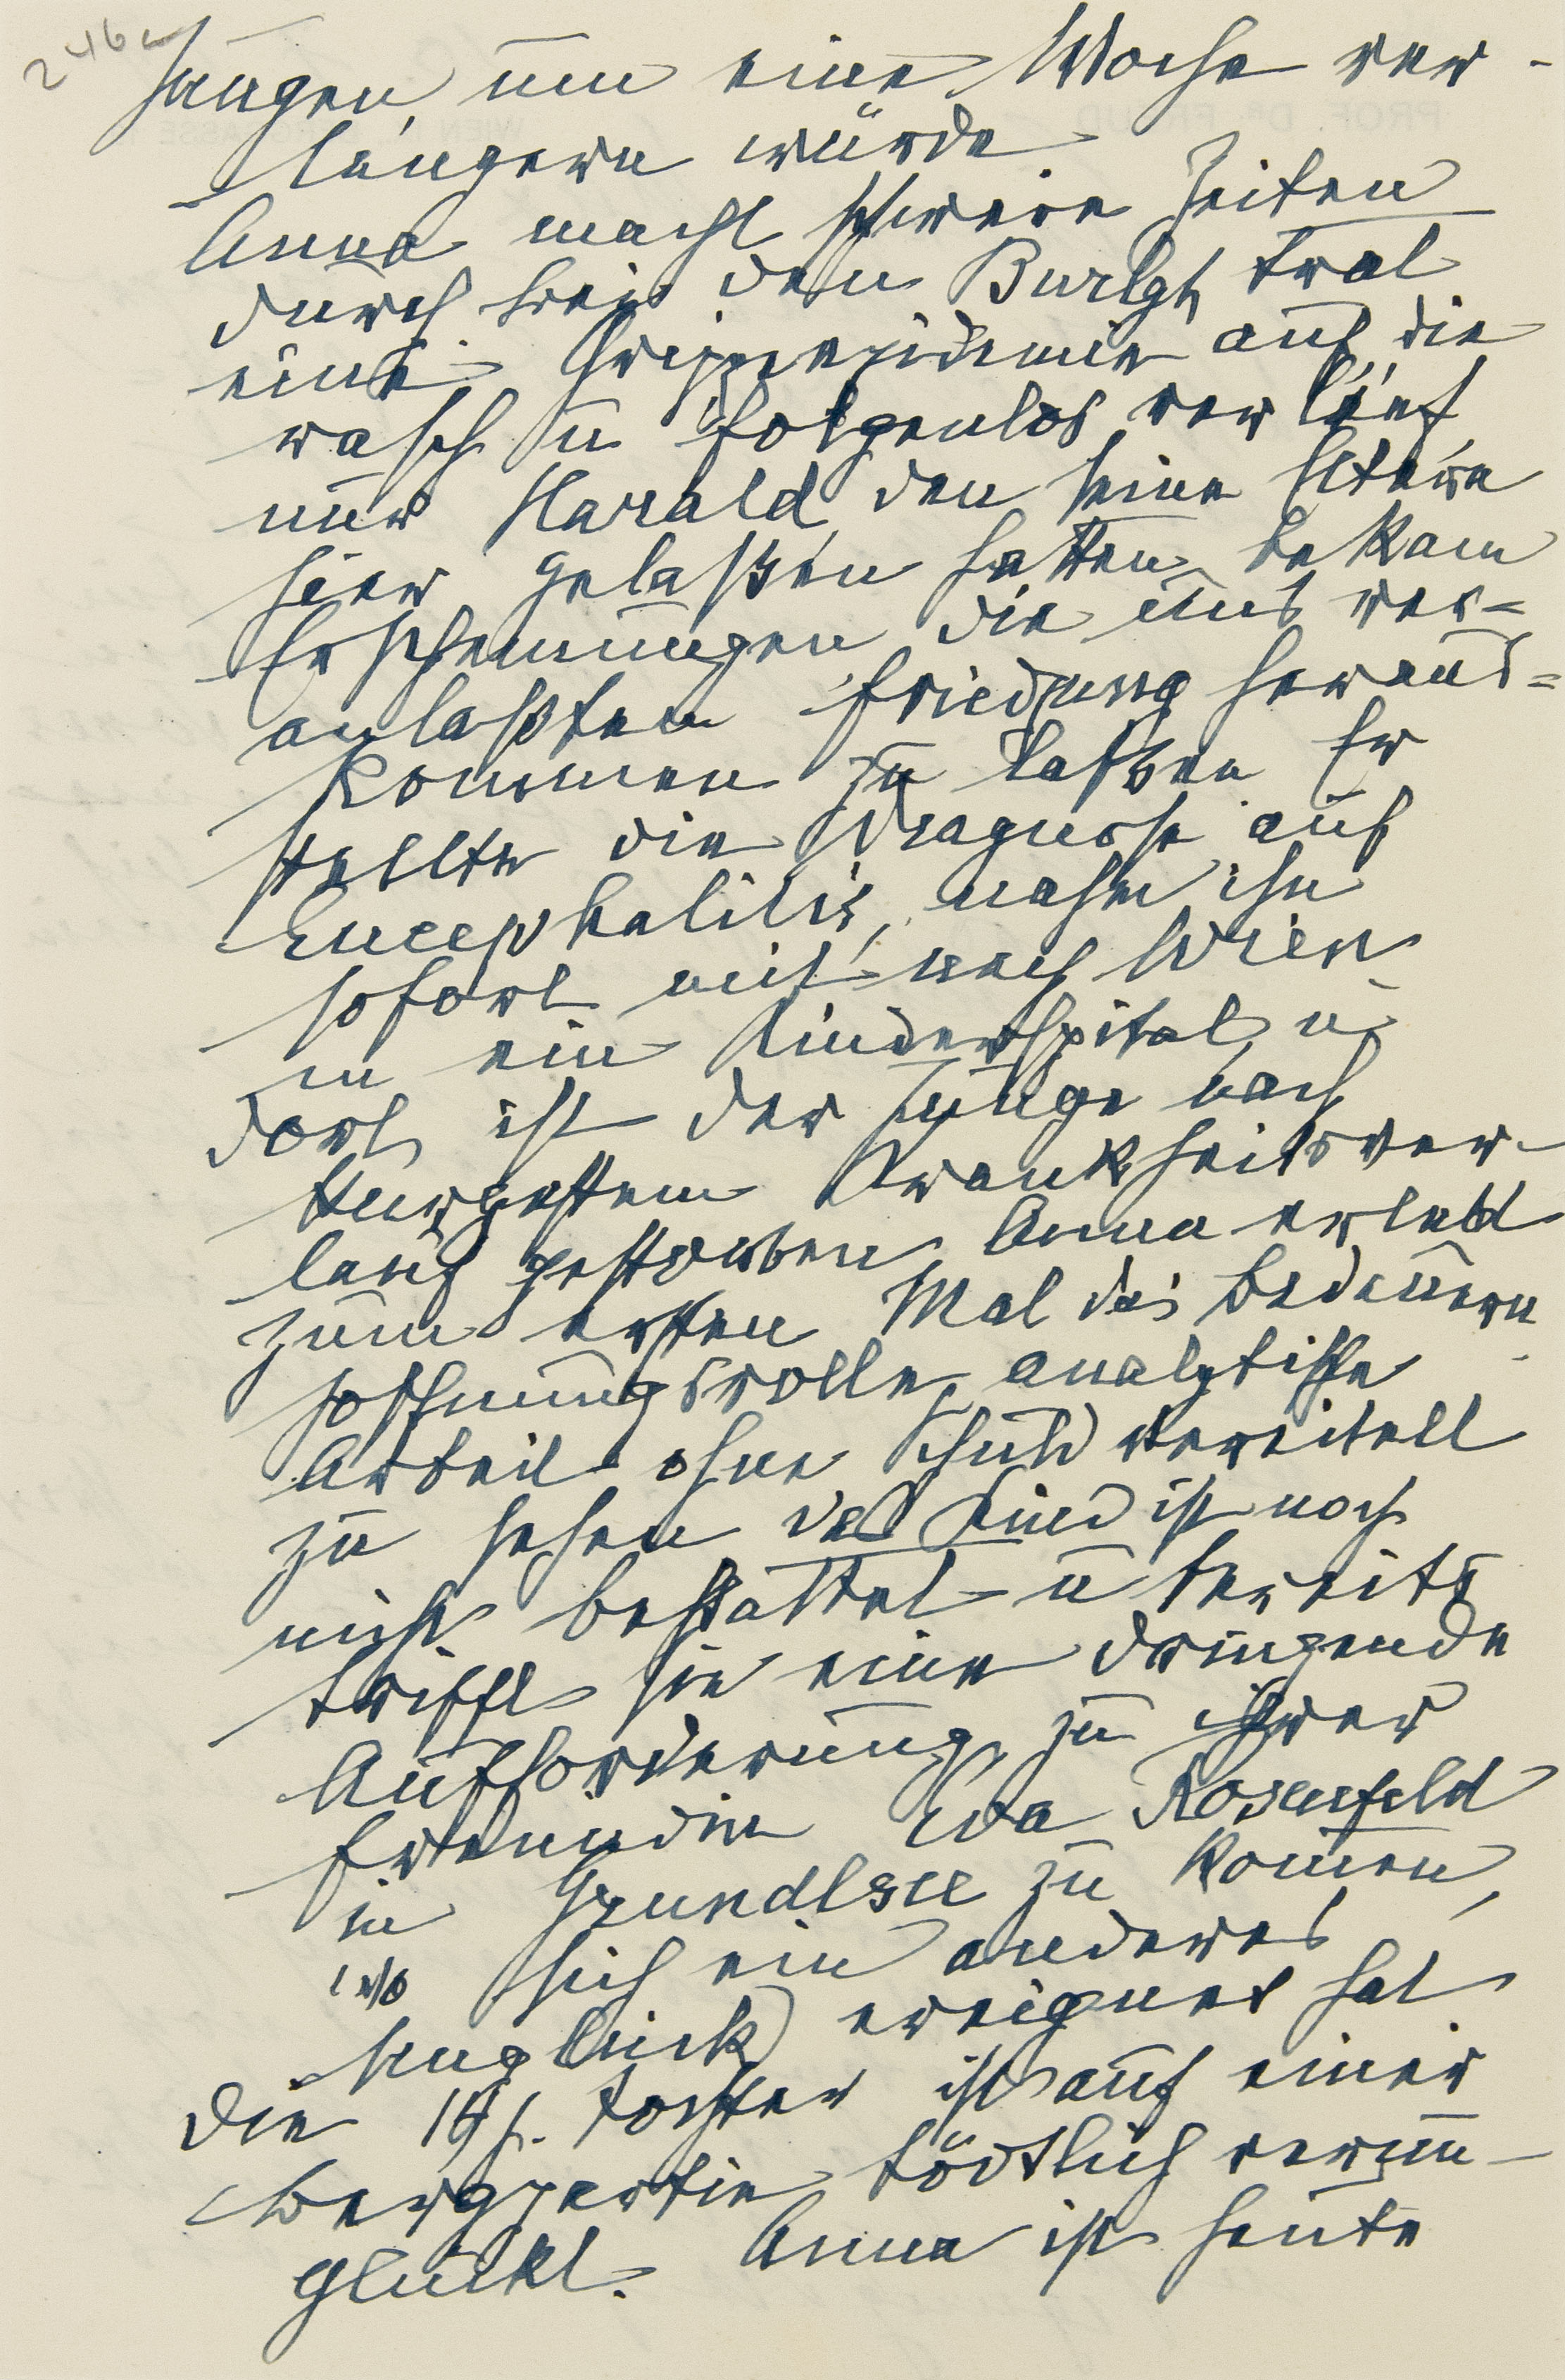 246
hängen, um eine Woche ver-
längern würde
Anna macht schwere Zeiten
durch bei den Burlgh trat
eine Grippeepidemie auf, die
rasch u folgenlos verlief,
nur Harald, den seine Eltern
hier gelaßen hatten, bekam
Erscheinungen, die uns ver=
anlaßten Friedjung heraus=
kommen zu laßen Er
stellte die Diagnose auf
Encephalitis, nahm ihn
sofort mit nach Wien
in ein Kinderspital, u
dort ist der Junge nach
kurzestem Krankheitsver-
lauf gestorben. Anna erlebt
zum ersten Mal das Bedauern
hoffnungsvolle, analytische
Arbeit ohne Schuld vereitelt
zu sehen das Kind ist noch
nicht bestattet u bereits
trifft sie eine dringende
Aufforderung, zu ihrer
Freundin Eva Rosenfeld
in Grundlsee zu kommen,
wo sich ein anderes
Unglück ereignet hat
die 15j. Tochter ist auf einer
Bergpartie tödtlich verun-
glückt. Anna ist heute